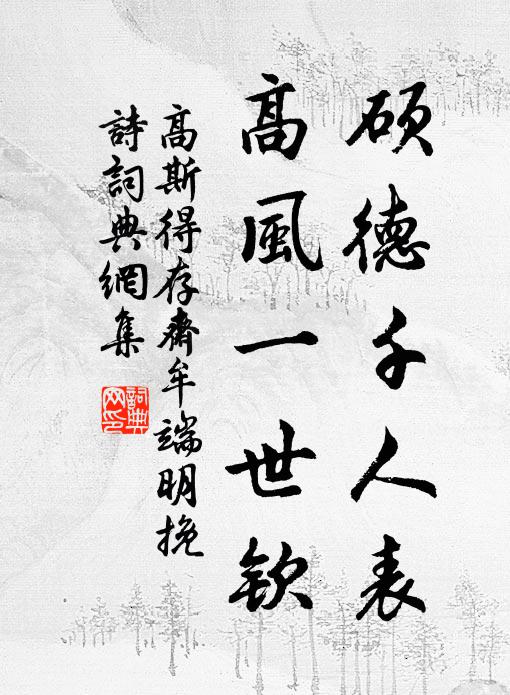 硕德千人表
高風一世欽
高斯得存齋牟端明挽
詩詞典網集
詞典網印